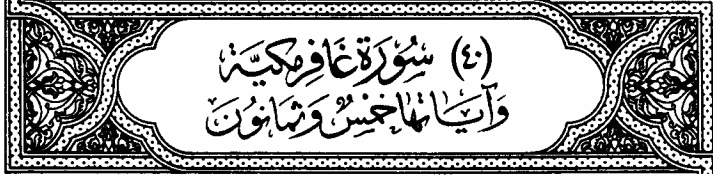 (٤٠) سُوْرَةُ غَافِرٍ مَكِّيَّةٌ
وَآيَاتُهَا خَمْسٌ وَثَمَانُوْنَ